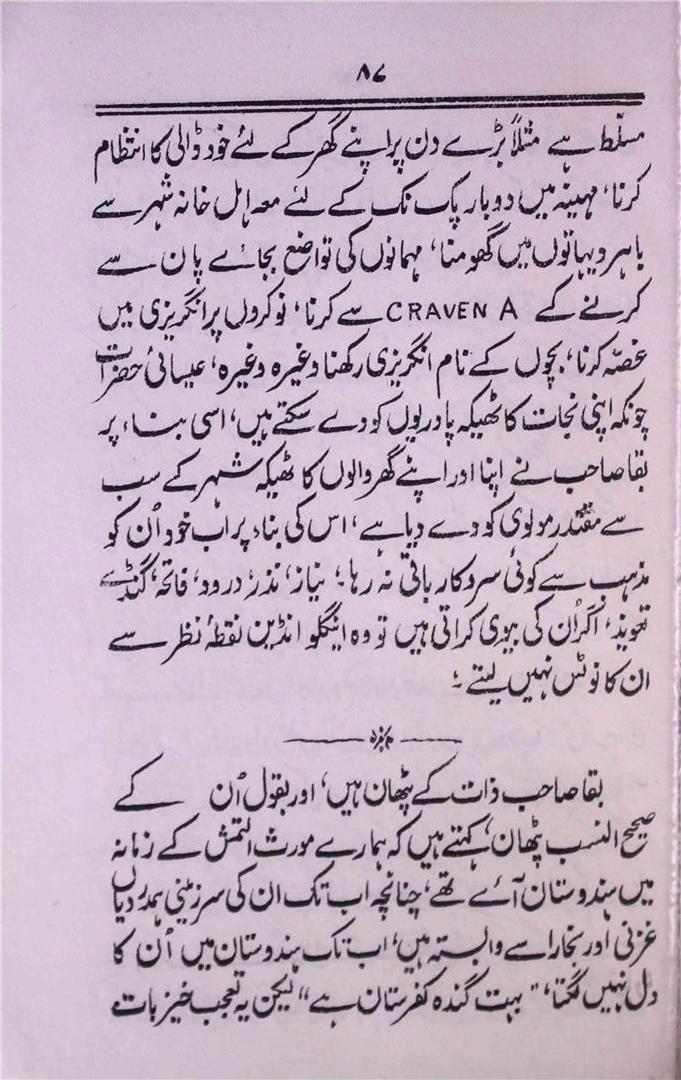 ۸۷
مسلّط ہے مثلاً بڑے دن پر اپنے گھر کے لئے خود ڈالی کا انتظام
کرنا، مہینہ میں دو بار پک نک کے لئے معہ اہل خانہ شہر سے
باہر دیہاتوں میں گھومنا، مہمانوں کی تواضع بجائے پان سے
کرنے کے CRAVEN A سے کرنا، نوکروں پر انگریزی میں
غصّہ کرنا، بچوں کے نام انگریزی رکھنا وغیرہ وغیرہ، عیسائی حضرات
چونکہ اپنی نجات کا ٹھیکہ پادریوں کو دے سکتے ہیں، اسی بناء پر
بقا صاحب نے اپنا اور اپنے گھر والوں کا ٹھیکہ شہر کے سب
سے مقتدر مولوی کو دے دیا ہے، اس کی بناء پر اب خود اُن کو
مذہب سے کوئی سروکار باقی نہ رہا۔؛ نیاز، نذر، درود، فاتحہ، گنڈے
تعویذ، اگر اُن کی بیوی کراتی ہیں تو وہ اینگلو انڈین نقطۂ نظر سے
ان کا نوٹس نہیں لیتے ۔؛
بقا صاحب ذات کے پٹھان ہیں، اور بقول اُن کے
صحیح النسب پٹھان، کہتے ہیں کہ ہمارے مورث التمش کے زمانہ
میں ہندوستان آئے تھے، چنانچہ اب تک ان کی سرزمینی ہمدردیاں
غزنی اور بخارا سے وابستہ ہیں، اب تک ہندوستان میں اُن کا
دل نہیں لگتا، "بہت گندہ کفرستان ہے" لیکن یہ تعجب خیز بات